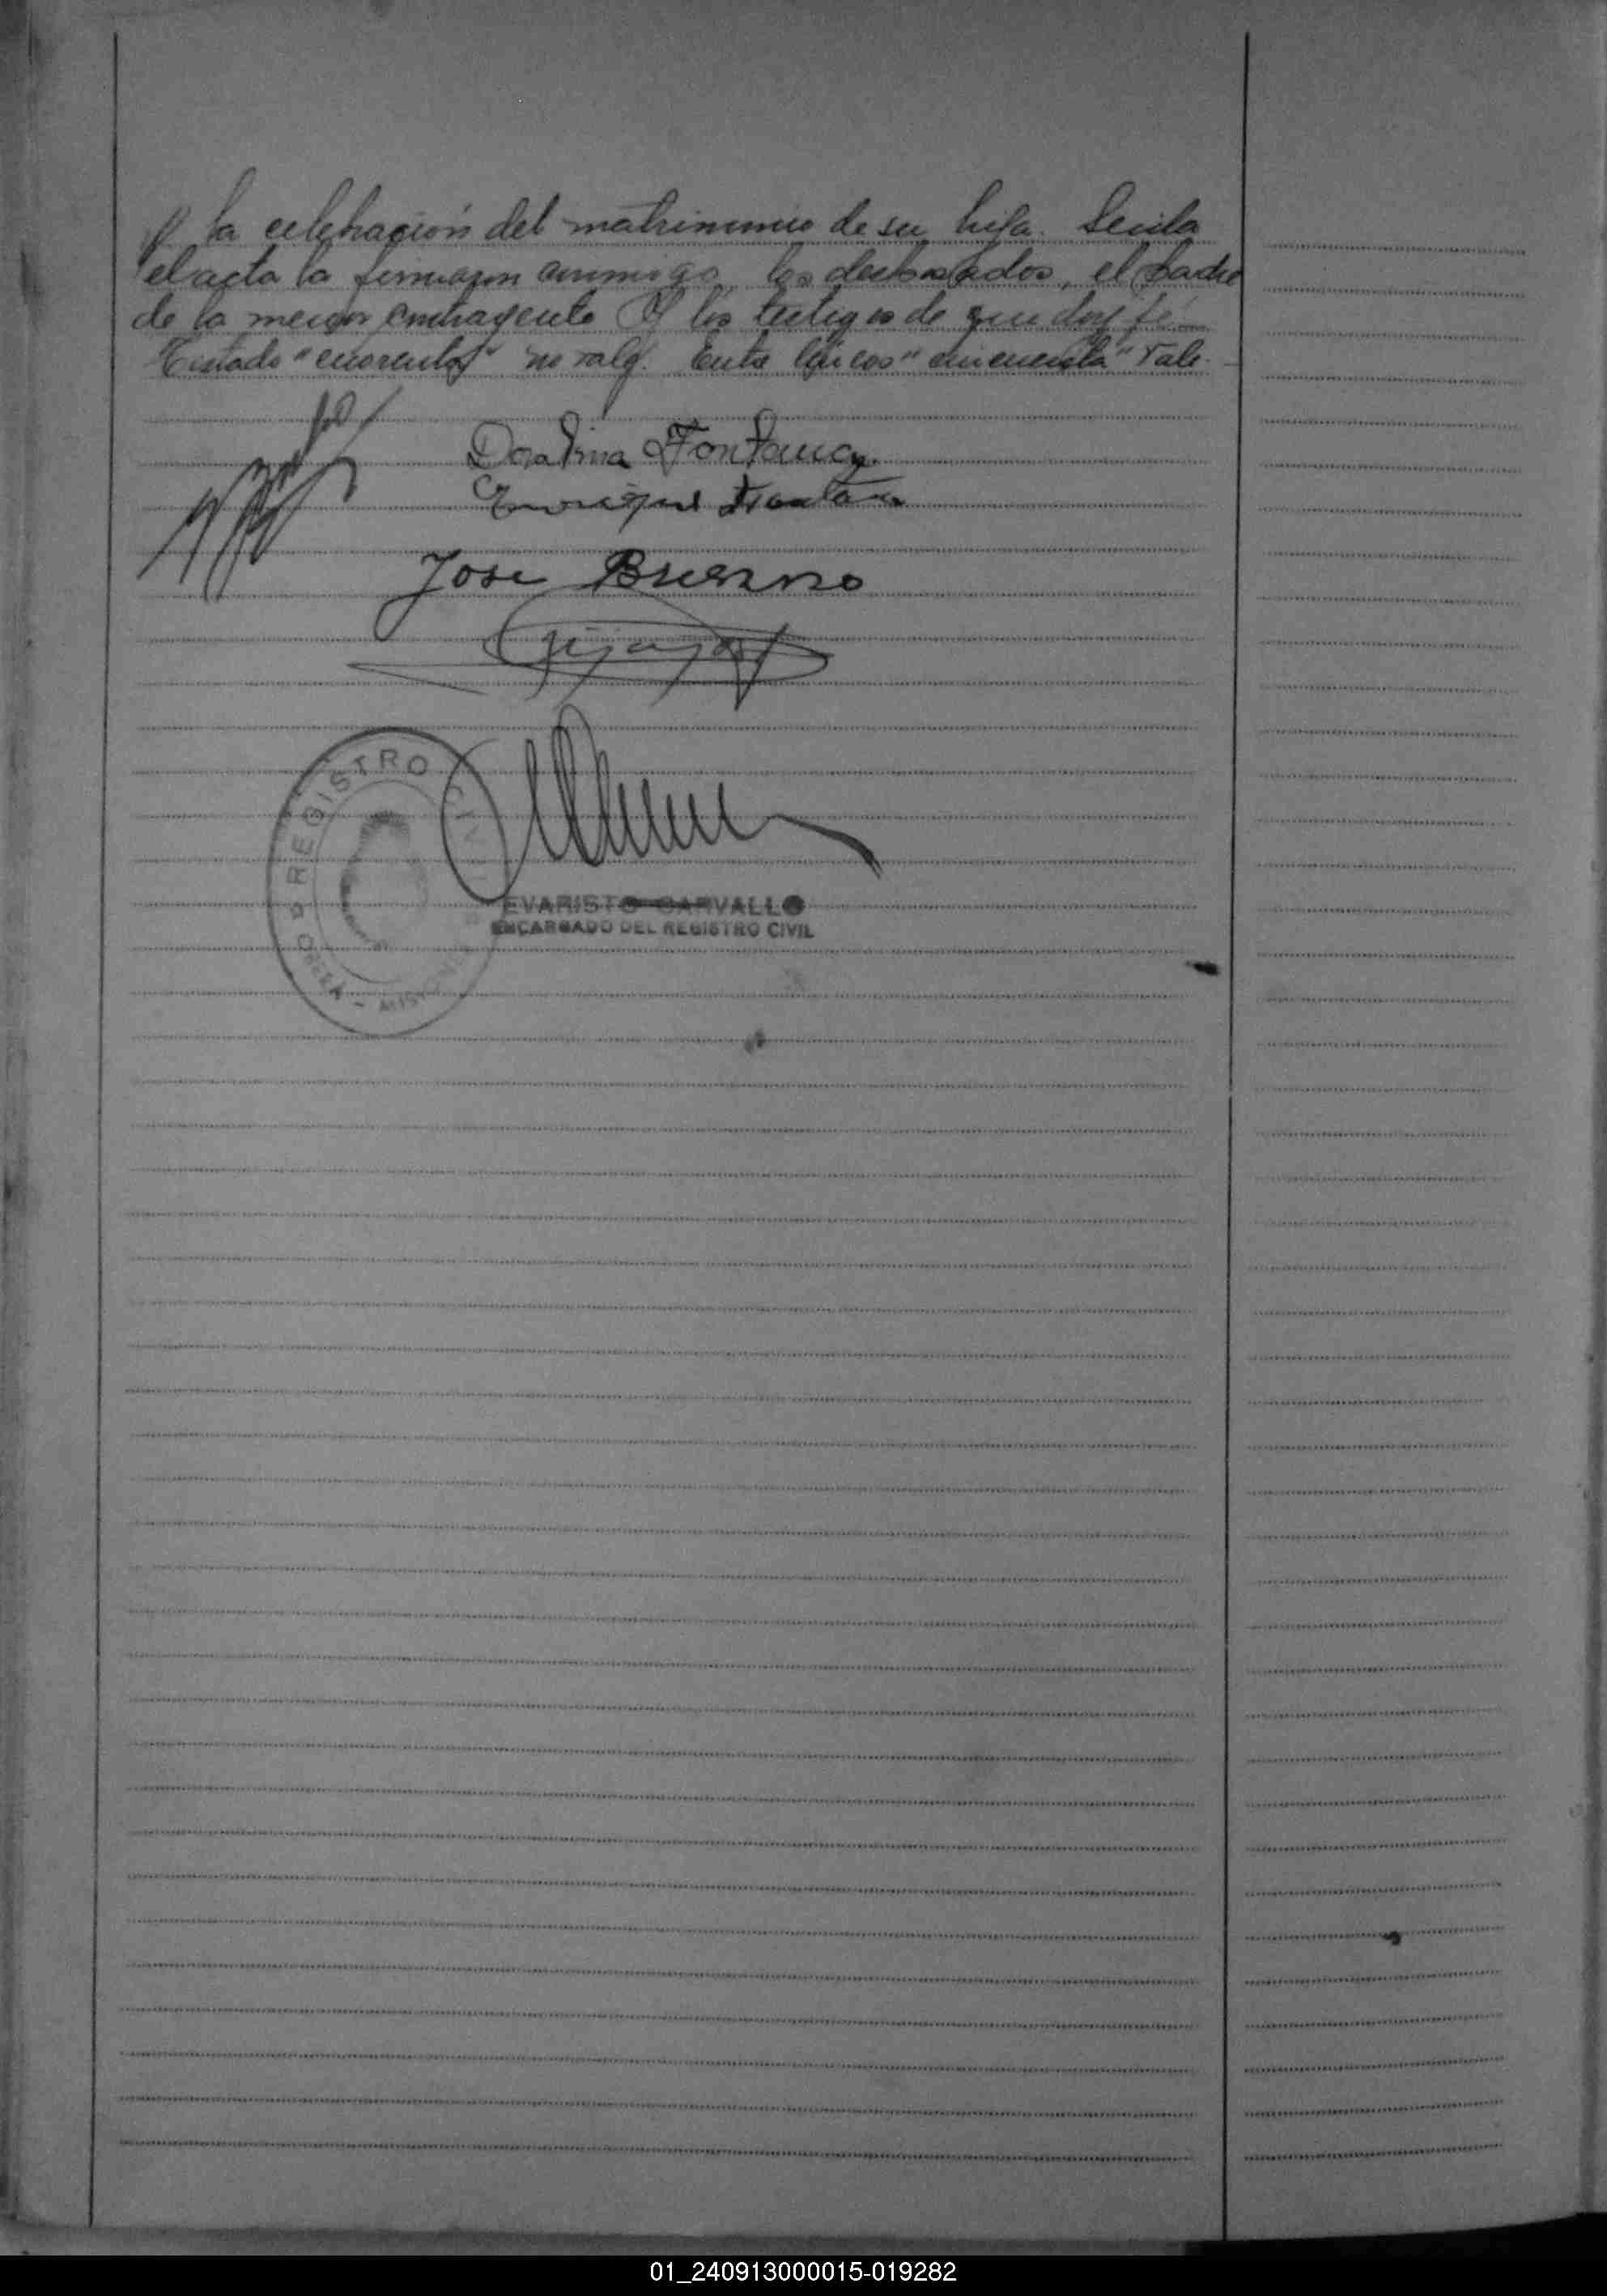 a la celebración del matrimonio de su hija. Leida
el acta la firmaron conmigo, los desposados, el padre
de la menor contrayente y los testigos de que doy fé.
Testado "cuarenta" no vale. Entre lineas "cincuenta" Vale.
Doralina Fontana
Enrique Fontana
Jose Buenno
REGISTRO CIVIL
MISIONES
EVARISTO CARVALLO
ENCARGADO DEL REGISTRO CIVIL
01_240913000015-019282